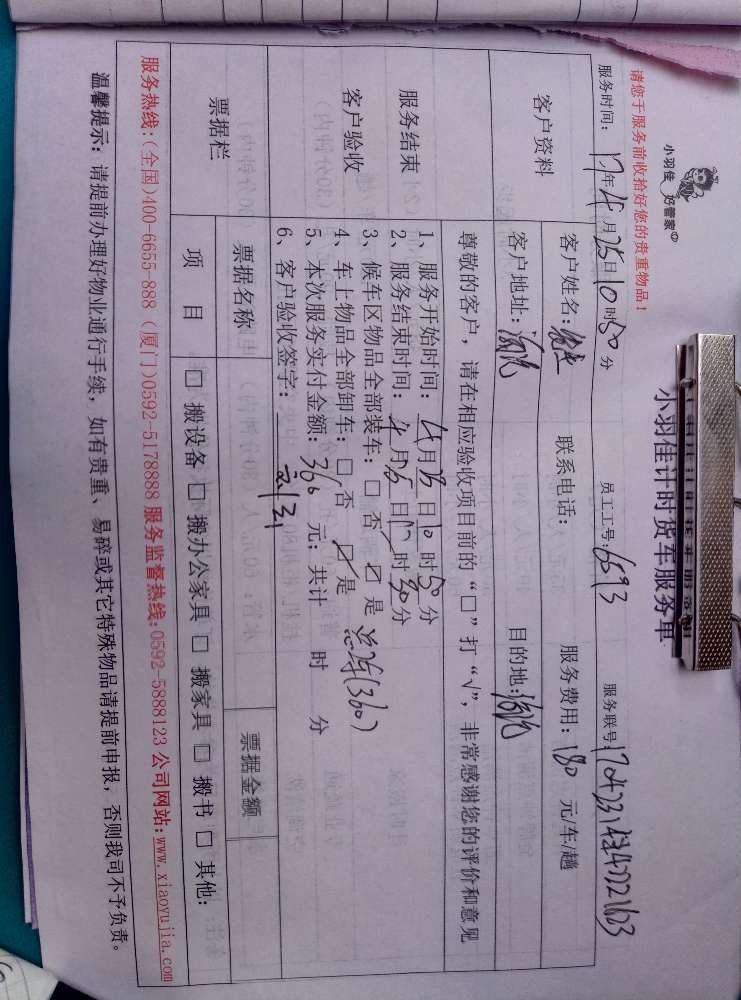 小羽佳 好管家
小羽佳计时货车服务单
请您于服务前收拾好您的贵重物品！
服务时间：17年4月25日10时50分 员工工号：6593 服务联号：
客户资料
客户姓名： 联系电话： 服务费用：180 元/车/趟
客户地址： 目的地：
服务结束
客户验收
尊敬的客户，请在相应验收项目前的“□”打“√”，非常感谢您的评价和意见
1、服务开始时间：4月25日10时50分
2、服务结束时间：4月25日 时30分
3、候车区物品全部装车：□ 否 ☑ 是
4、车上物品全部卸车：□ 否 ☑ 是
5、本次服务实付金额：360 元；共计 时 分
6、客户验收签字：
票据栏
票据名称 票据金额
项 目 □ 搬设备 □ 搬办公家具 □ 搬家具 □ 搬书 □ 其他：
服务热线：(全国)400-6655-888 (厦门)0592-5178888 服务监督热线：0592-5888123 公司网站：www.xiaoyujia.com
温馨提示：请提前办理好物业通行手续，如有贵重、易碎或其它特殊物品请提前申报，否则我司不予负责。